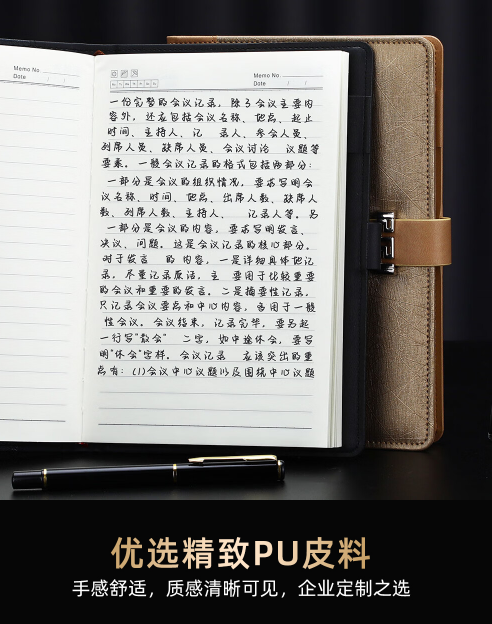 Memo No.
Date / /
Memo No.
Date / /
一份完整的会议记录，除了会议主要内
容外，还应包括会议名称、地点、起止
时间、主持人、记 录人、参会人员、
列席人员、缺席人员、会议讨论 议题等
要素。一般会议记录的格式包括两部分：
一部分是会议的组织情况，要求写明会
议名称、时间、地点、出席人数、缺席人
数、列席人数、主持人、 记录人等。另
一部分是会议的内容，要求写明发言、
决议、问题。这是会议记录的核心部分。
对于发言 的内容，一是详细具体地记
录，尽量记录原话，主 要用于比较重要
的会议和重要的发言。二是摘要性记录，
只记录会议要点和中心内容，多用于一般
性会议。会议结束，记录完毕，要另起
一行写"散会" 二字，如中途休会，要写
明"休会"字样。会议记录 应该突出的重
点有：(1)会议中心议题以及围绕中心议题
优选精致PU皮料
手感舒适，质感清晰可见，企业定制之选